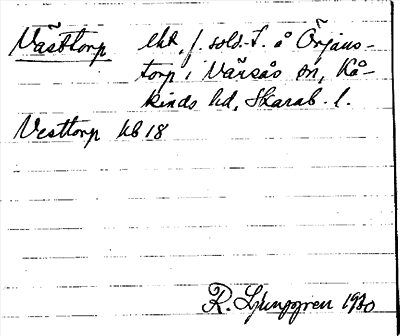 Västtorp lht, f. sold.-t. å Örjans-
torp i Varsås sn, Kå-
kinds hd, Skarab. l.
Vesttorp hb 18
R. Ljunggren 1930